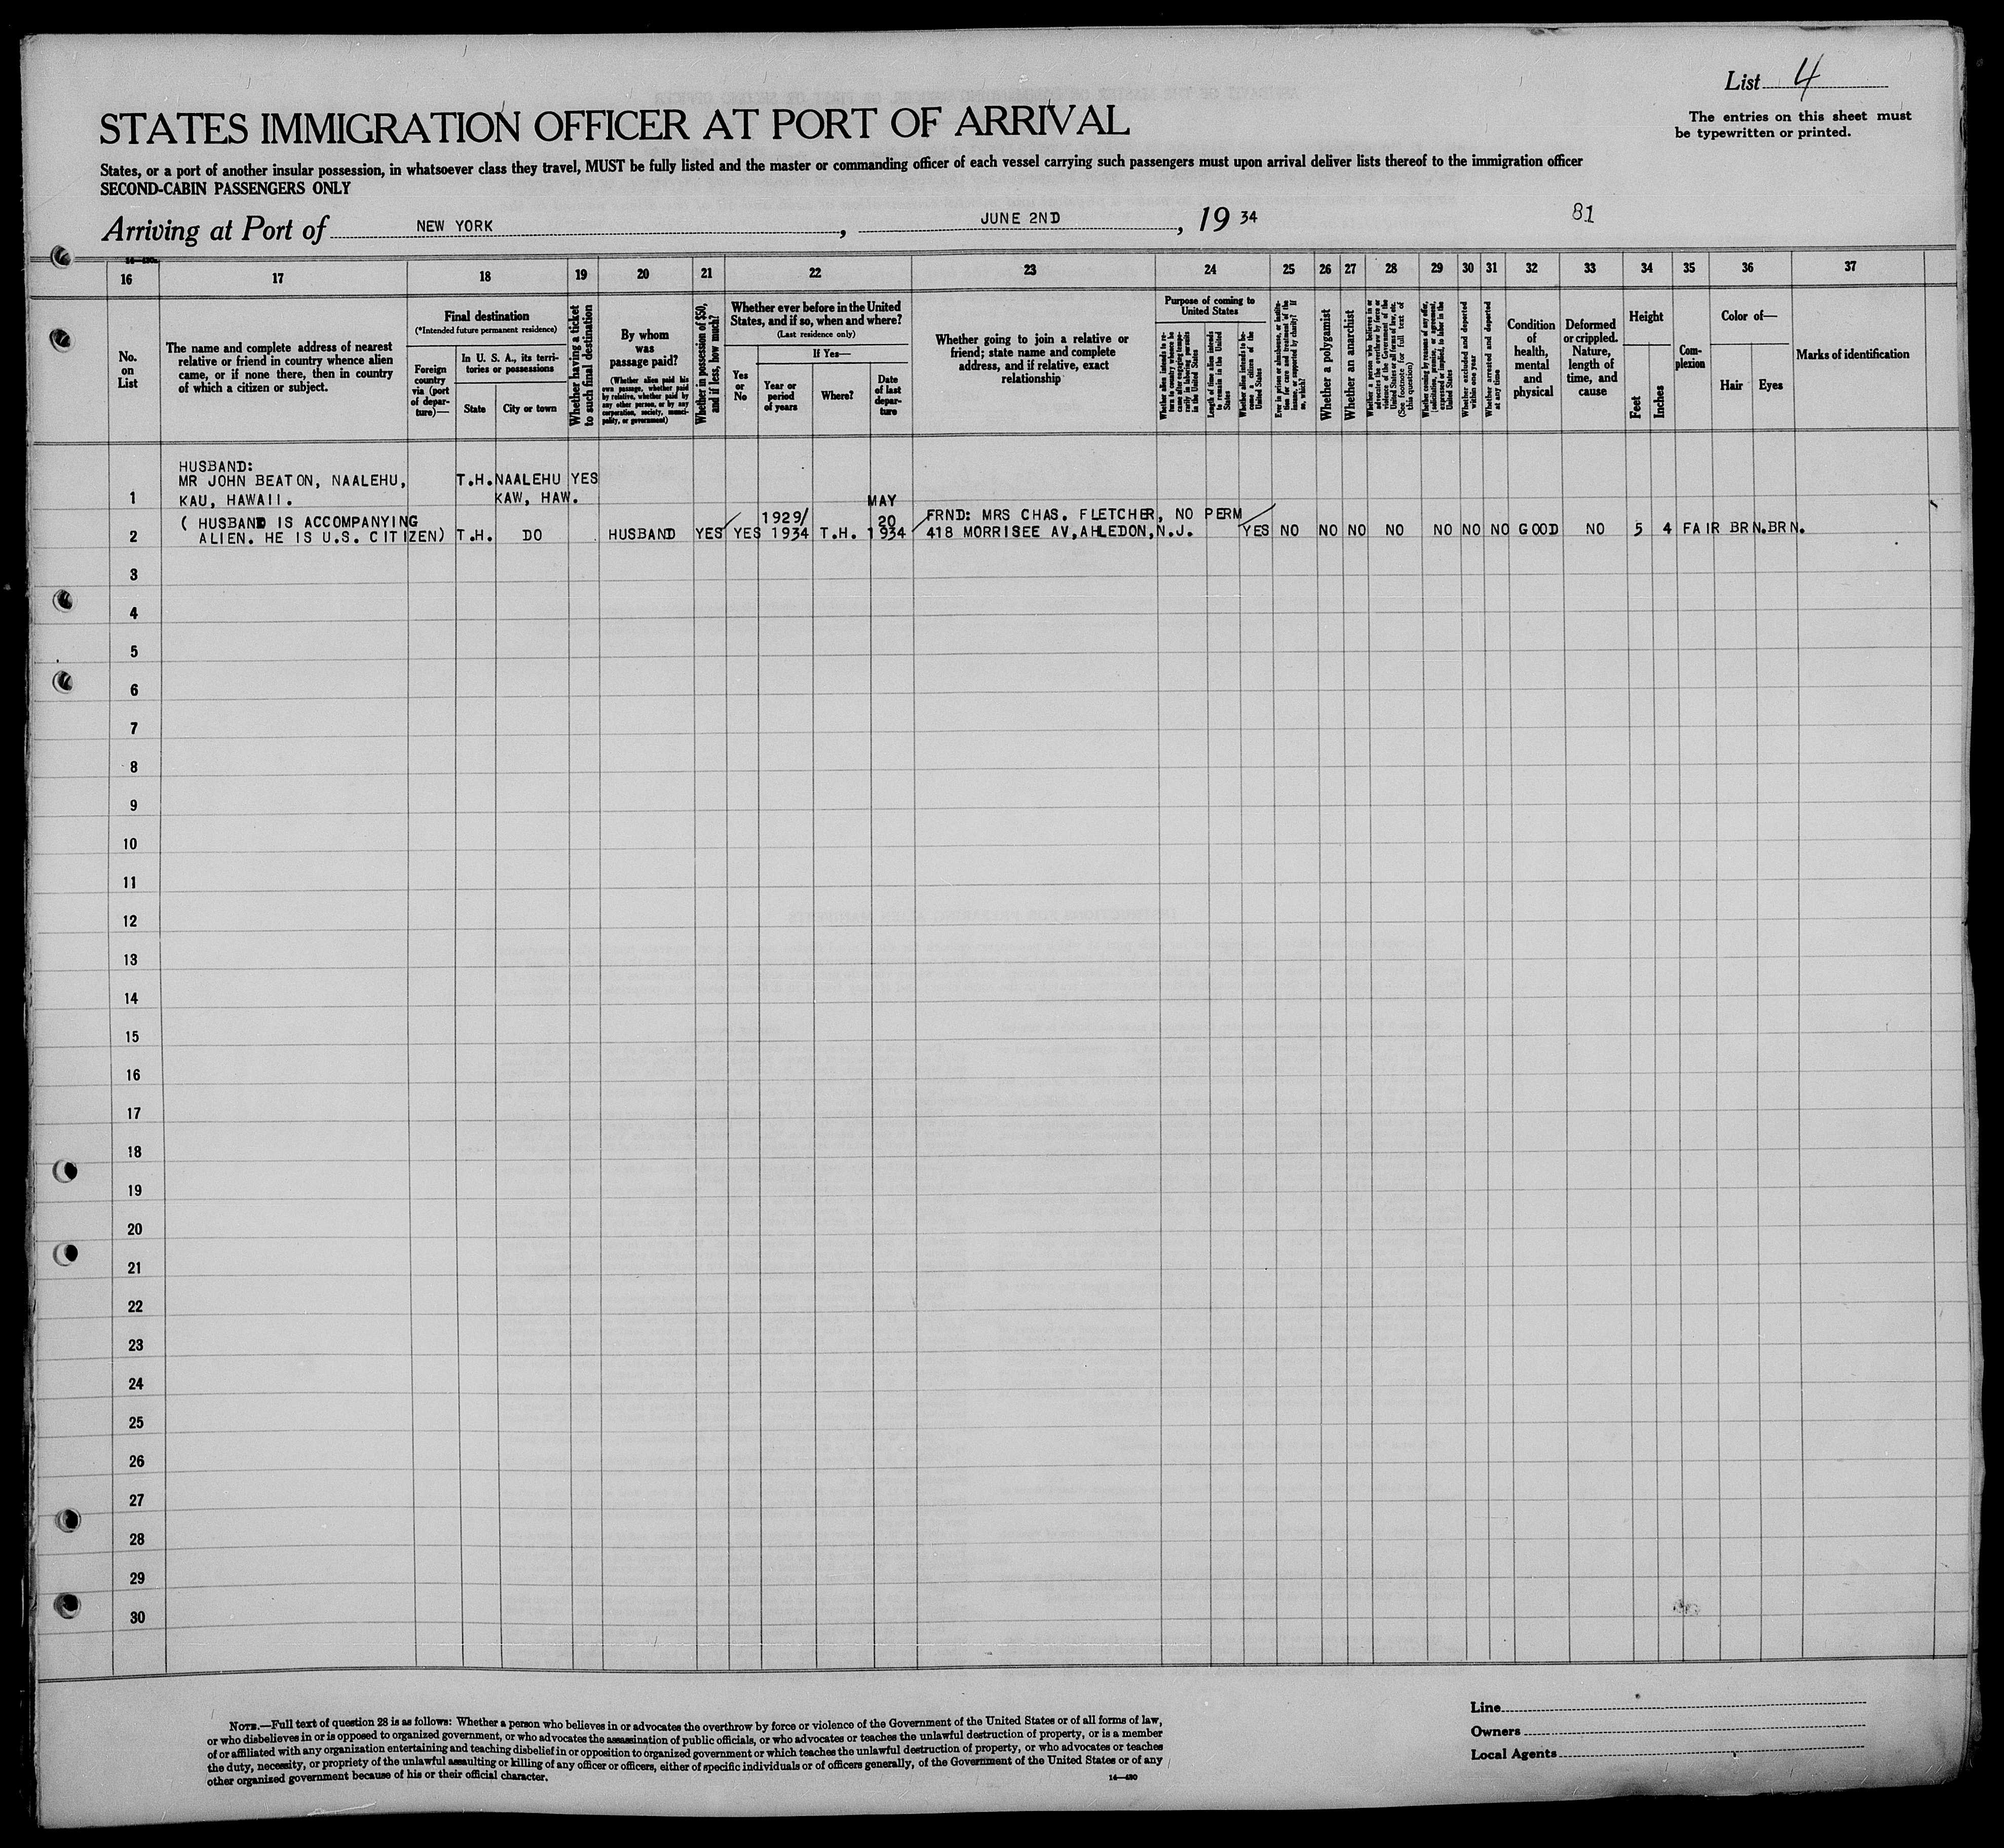 List 4
The entries on this sheet must
be typewritten or printed.
STATES IMMIGRATION OFFICER AT PORT OF ARRIVAL
States, or a port of another insular possession, in whatsoever class they travel, MUST be fully listed and the master or commanding officer of each vessel carrying such passengers must upon arrival deliver lists thereof to the immigration officer
SECOND-CABIN PASSENGERS ONLY
Arriving at Port of NEW YORK, JUNE 2ND, 19 34
81
16 17 18 19 20 21 22 23 24 25 26 27 28 29 30 31 32 33 34 35 36 37
No.
on
List
The name and complete address of nearest
relative or friend in country whence alien
came, or if none there, then in country
of which a citizen or subject.
Final destination
(*Intended future permanent residence)
Foreign
country
via (port
of depar-
ture)—
In U. S. A., its terri-
tories or possessions
State
City or town
Whether having a ticket
to such final destination
By whom
was
passage paid?
(Whether alien paid his
own passage, whether paid
by relative, whether paid by
any other person, or by any
corporation, society, munici-
pality, or government)
Whether in possession of $50,
and if less, how much?
Whether ever before in the United
States, and if so, when and where?
(Last residence only)
Yes
or
No
If Yes—
Year or
period
of years
Where?
Date
of last
depar-
ture
Whether going to join a relative or
friend; state name and complete
address, and if relative, exact
relationship
Purpose of coming to
United States
Whether alien intends to re-
turn to country whence he
came after engaging tempo-
rarily in laboring pursuits
in the United States
Length of time alien intends
to remain in the United
States
Whether alien intends to be-
come a citizen of the
United States
Ever in prison or almshouse, or institu-
tion for care and treatment of the
insane, or supported by charity? If
so, which?
Whether a polygamist
Whether an anarchist
Whether a person who believes in or
advocates the overthrow by force or
violence of the Government of the
United States or all forms of law, etc.
(See footnote for full text of
this question)
Whether coming by reasons of any offer,
solicitation, promise, or agreement,
expressed or implied, to labor in the
United States
Whether excluded and deported
within one year
Whether arrested and deported
at any time
Condition
of
health,
mental
and
physical
Deformed
or crippled.
Nature,
length of
time, and
cause
Height
Feet
Inches
Com-
plexion
Color of—
Hair
Eyes
Marks of identification
HUSBAND:
MR JOHN BEATON, NAALEHU, T.H. NAALEHU YES
1 KAU, HAWAII. KAW, HAW.
( HUSBAND IS ACCOMPANYING 1929/ MAY 20 FRND: MRS CHAS. FLETCHER, NO PERM
2 ALIEN. HE IS U.S. CITIZEN) T.H. DO HUSBAND YES YES 1934 T.H. 1934 418 MORRISEE AV, AHLEDON, N.J. YES NO NO NO NO NO NO NO GOOD NO 5 4 FAIR BRN. BRN.
3
4
5
6
7
8
9
10
11
12
13
14
15
16
17
18
19
20
21
22
23
24
25
26
27
28
29
30
NOTE.—Full text of question 28 is as follows: Whether a person who believes in or advocates the overthrow by force or violence of the Government of the United States or of all forms of law,
or who disbelieves in or is opposed to organized government, or who advocates the assassination of public officials, or who advocates or teaches the unlawful destruction of property, or is a member
of or affiliated with any organization entertaining and teaching disbelief in or opposition to organized government or which teaches the unlawful destruction of property, or who advocates or teaches
the duty, necessity, or propriety of the unlawful assaulting or killing of any officer or officers, either of specific individuals or of officers generally, of the Government of the United States or of any
other organized government because of his or their official character.
14—480
Line
Owners
Local Agents